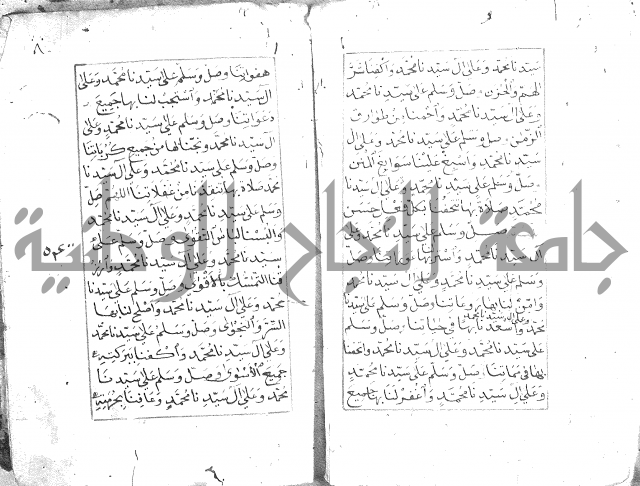 سيدنا محمد وعلى ال سيدنا محمد واكفنا شر
الهم والحزن وصل وسلم على سيدنا محمد
وعلى ال سيدنا محمد واحمنا من طوارق
الزمن وصل وسلم على سيدنا محمد وعلى ال
سيدنا محمد واسبغ علينا سوابغ المنن
وصل وسلم على سيدنا محمد وعلى ال سيدنا
محمد صلاة بها تتحفنا بكل فعل حسن
وصل وسلم على سيدنا محمد وعلى
ال سيدنا محمد واستر بها عوراتنا وصل
وسلم على سيدنا محمد وعلى ال سيدنا محمد
وامن لنا بها روعاتنا وصل وسلم على سيدنا
محمد وعلى ال سيدنا محمد واسعدنا بها في حياتنا وصل وسلم
على سيدنا محمد وعلى ال سيدنا محمد
بها في مماتنا وصل وسلم على سيدنا محمد
وعلى ال سيدنا محمد واغفر لنا بها جميع
٨
هفواتنا وصل وسلم على سيدنا محمد وعلى
ال سيدنا محمد واستجب لنا بها جميع
دعواتنا وصل وسلم على سيدنا محمد وعلى
ال سيدنا محمد ونجنا بها من جميع كرباتنا
وصل وسلم على سيدنا محمد وعلى ال سيدنا
محمد صلاة بها تنقذنا من غفلاتنا اللهم صل
وسلم على سيدنا محمد وعلى ال سيدنا محمد
والبسنا لباس التقوى وصل وسلم على
سيدنا محمد وعلى ال سيدنا محمد وارزقنا
التمسك بالاقوى وصل وسلم على سيدنا
محمد وعلى ال سيدنا محمد واصلح لنا بها
السر والنجوى وصل وسلم على سيدنا محمد
وعلى ال سيدنا محمد واكفنا ببركته
جميع الاسوى وصل وسلم على سيدنا
محمد وعلى ال سيدنا محمد وعافنا بحرمته
جامعة النجاح الوطنية